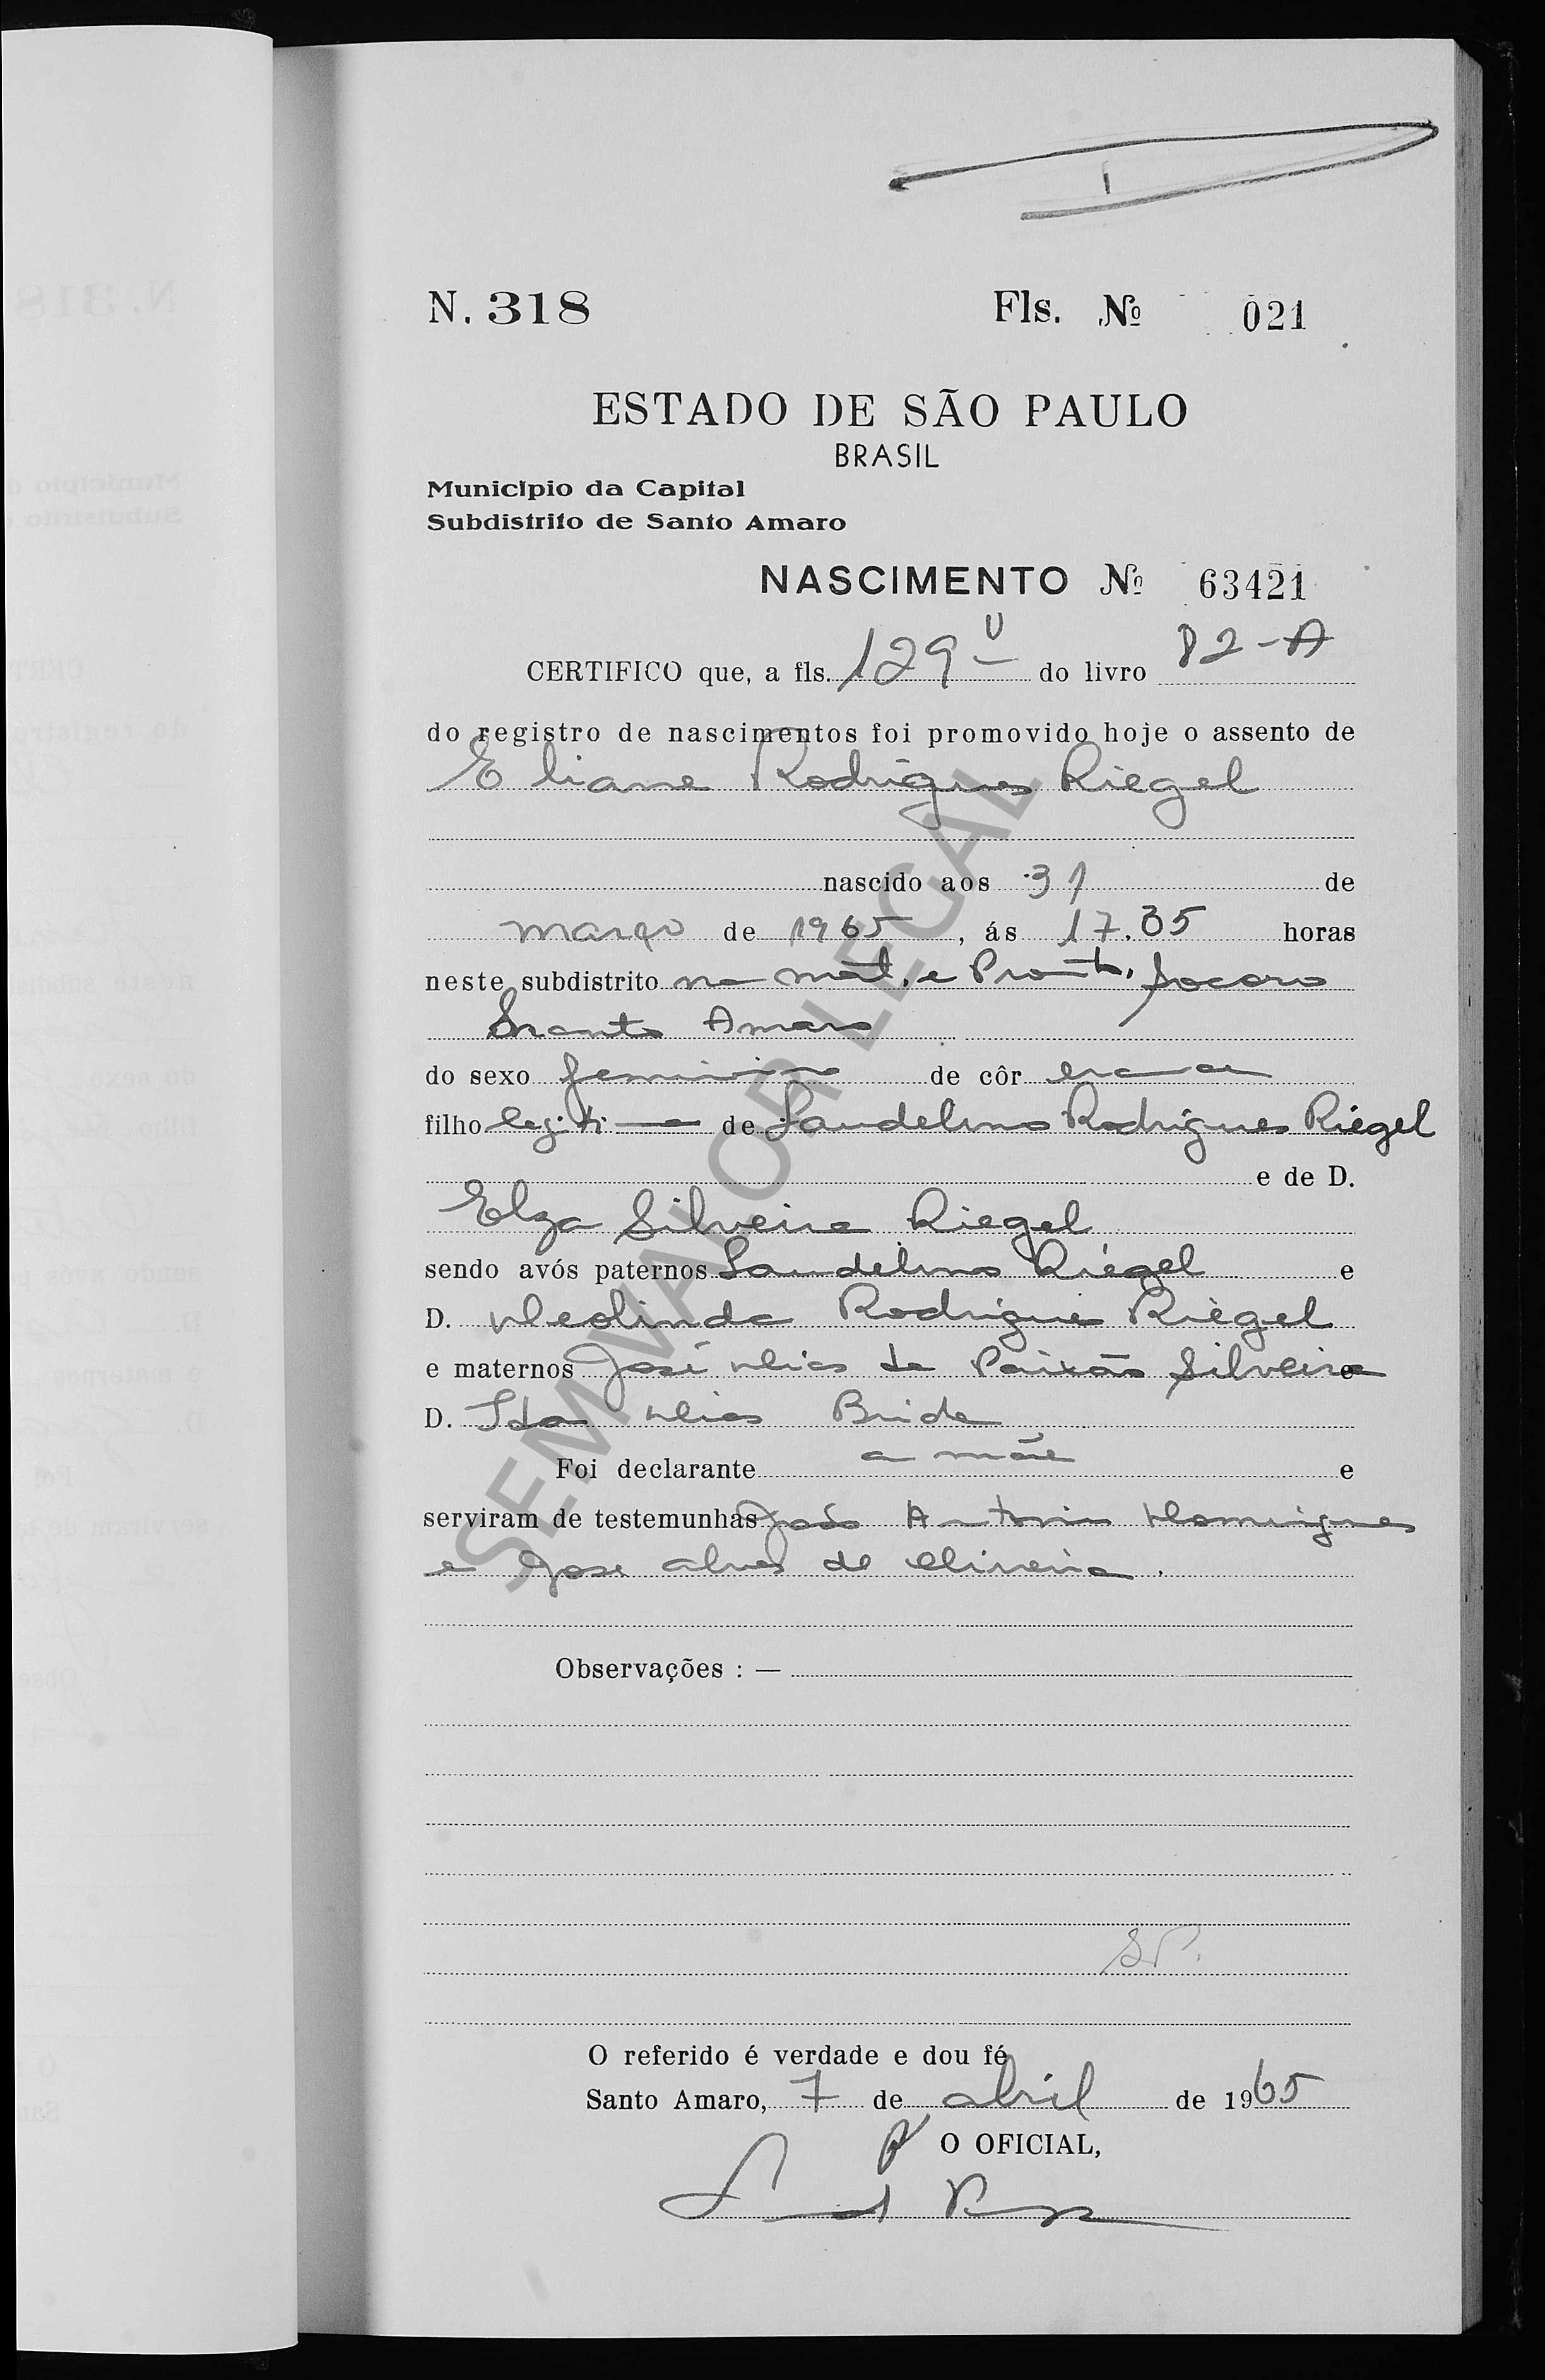 N. 318 Fls. Nº 021
ESTADO DE SÃO PAULO
BRASIL
Município da Capital
Subdistrito de Santo Amaro
NASCIMENTO Nº 63421
CERTIFICO que, a fls. 129 v do livro 82-A
do registro de nascimentos foi promovido hoje o assento de
Eliane Rodrigues Riegel
nascido aos 31 de
março de 1965, ás 17.35 horas
neste subdistrito na mat. e Pronto Socorro
Santo Amaro
do sexo feminino de côr
filho legitima de Laudelino Rodrigues Riegel
e de D.
Elza Silveira Riegel
sendo avós paternos Laudelino Riegel e
D. Deolinda Rodrigues Riegel
e maternos José Dias da Paixão Silveira e
D. Ida Dias
Foi declarante a mãe e
serviram de testemunhas João Antonio Domingues
e Jose Alves de Oliveira.
Observações : —
SP.
O referido é verdade e dou fé
Santo Amaro, 7 de abril de 1965
O OFICIAL,
SEM VALOR LEGAL